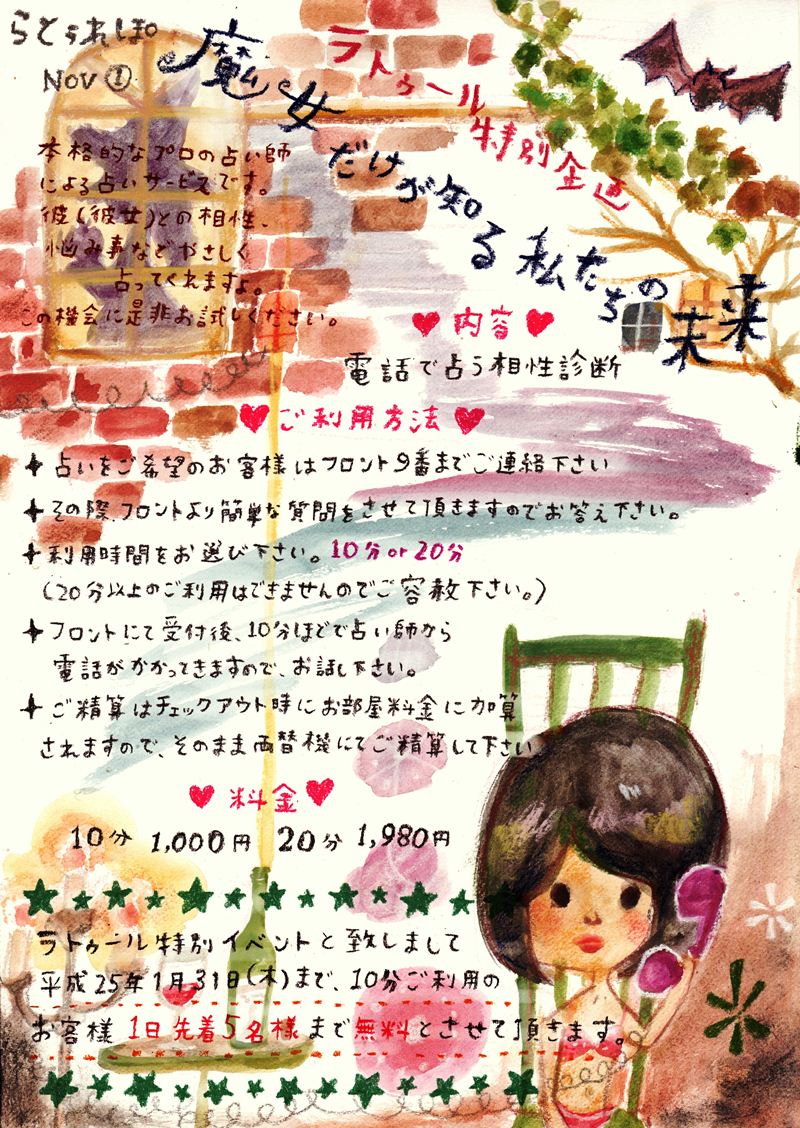 らとぅれぽ
Nov ①
ラトゥール特別企画
魔女だけが知る私たちの未来
本格的なプロの占い師
による占いサービスです。
彼(彼女)との相性、
悩み事などやさしく
占ってくれますよ。
この機会に是非お試しください。
♥ 内容 ♥
電話で占う相性診断
♥ ご利用方法 ♥
✦ 占いをご希望のお客様はフロント9番までご連絡下さい
✦ その際、フロントより簡単な質問をさせて頂きますのでお答え下さい。
✦ 利用時間をお選び下さい。10分or20分
(20分以上のご利用はできませんのでご容赦下さい。)
✦ フロントにて受付後、10分ほどで占い師から
電話がかかってきますので、お話し下さい。
✦ ご精算はチェックアウト時にお部屋料金に加算
されますので、そのまま両替機にてご精算して下さい
♥ 料金 ♥
10分 1,000円 20分 1,980円
ラトゥール特別イベントと致しまして
平成25年1月31日(木)まで、10分ご利用の
お客様 1日先着5名様まで無料とさせて頂きます。